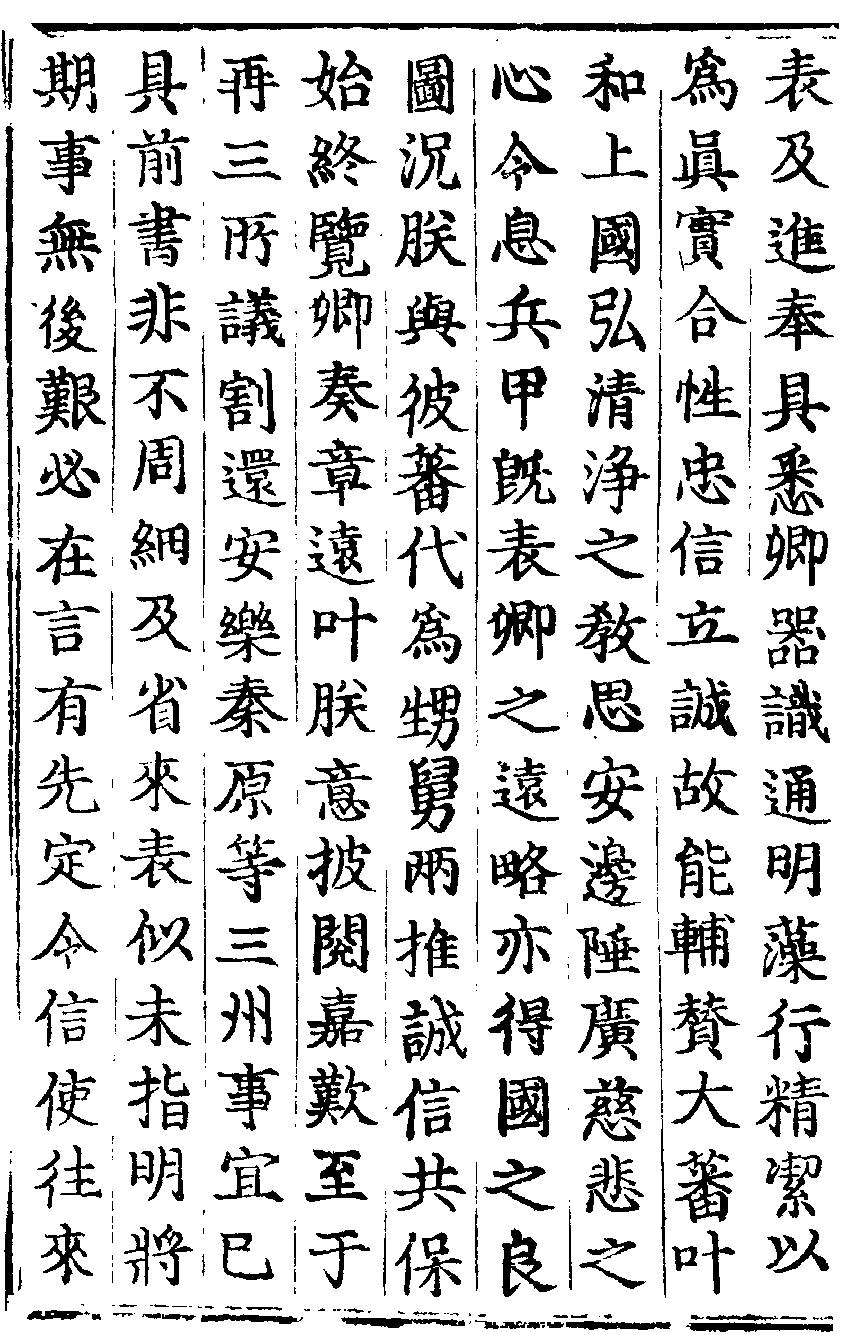 表及進奉具悉卿器識通明藻行精潔以
爲眞實合性忠信立誠故能輔賛大蕃叶
和上國弘清浄之教思安邊陲廣慈悲之
心令息兵甲旣表卿之遠略亦得國之良
圖况朕與彼蕃代爲甥舅兩推誠信共保
始終覽卿奏章遠叶朕意披閱嘉歎至于
再三所議割還安樂秦原等三州事宜巳
具前書非不周細及省來表似未指明將
期事無後艱必在言有先定今信使往來